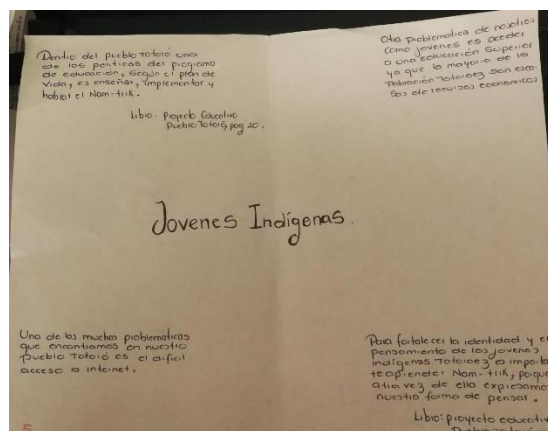 Dentro del pueblo Totoró una
de las politicas del programa
de educación, Según el plan de
Vida, es enseñar, implementar y
hablar el Nam-trik.
Libro: Proyecto Educativo
Pueblo Totoró, pag 20.
Otra problematica de nosotros
como jovenes es acceder
a una educación Superior
ya que la mayoria de la
Población Totoroez son esca-
sos de recursos economicos
Jovenes Indígenas.
Una de las muchas problematicas
que encontramos en nuestro
pueblo Totoró es el dificil
acceso a internet.
Para fortalecer la identidad y el
pensamiento de los jovenes
indígenas Totoroez es importa
te aprender Nam-trik, porque
atravez de ella expresamo
nuestra forma de pensar.
Libro: proyecto educativ
5